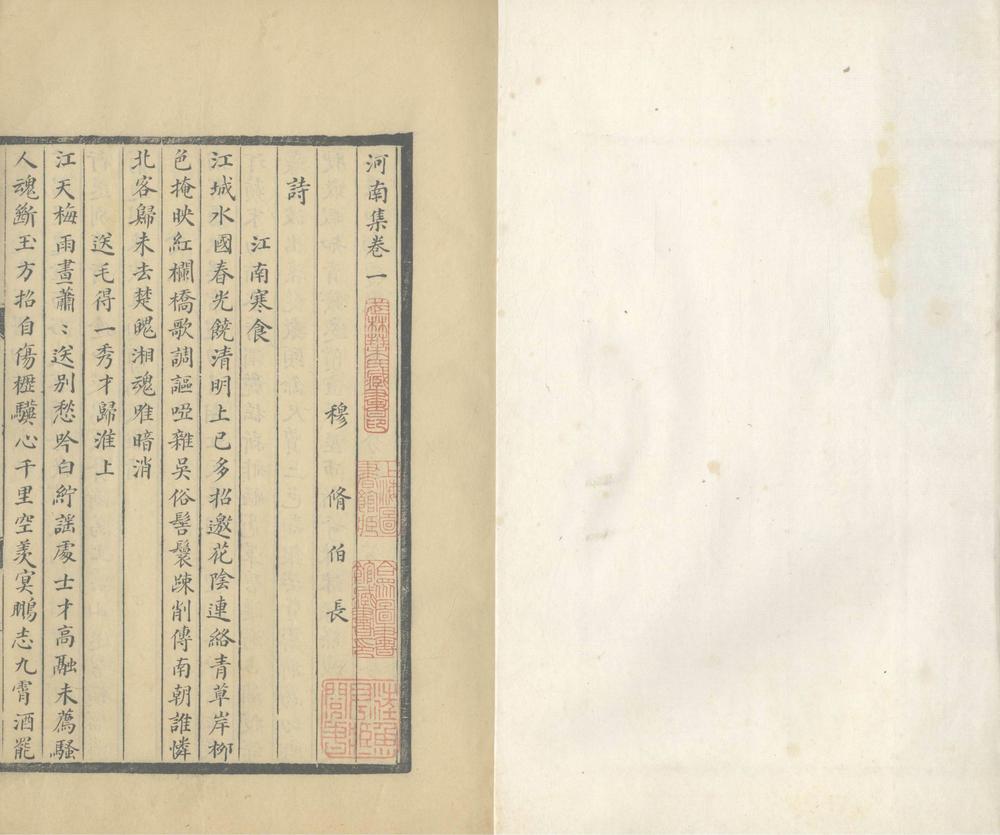 河南集卷一
穆脩伯長
詩
江南寒食
江城水國春光饒清明上巳多招邀花陰連絡青草岸柳
色掩映紅欄橋歌調謳啞雜吳俗髻鬟疎削傳南朝誰憐
北客歸未去楚魄湘魂唯暗消
送毛得一秀才歸淮上
江天梅雨晝蕭〻送別愁吟白紵謠處士才高融未薦騷
人魂斷玉方招自傷櫪驥心千里空羨冥鵬志九霄酒罷